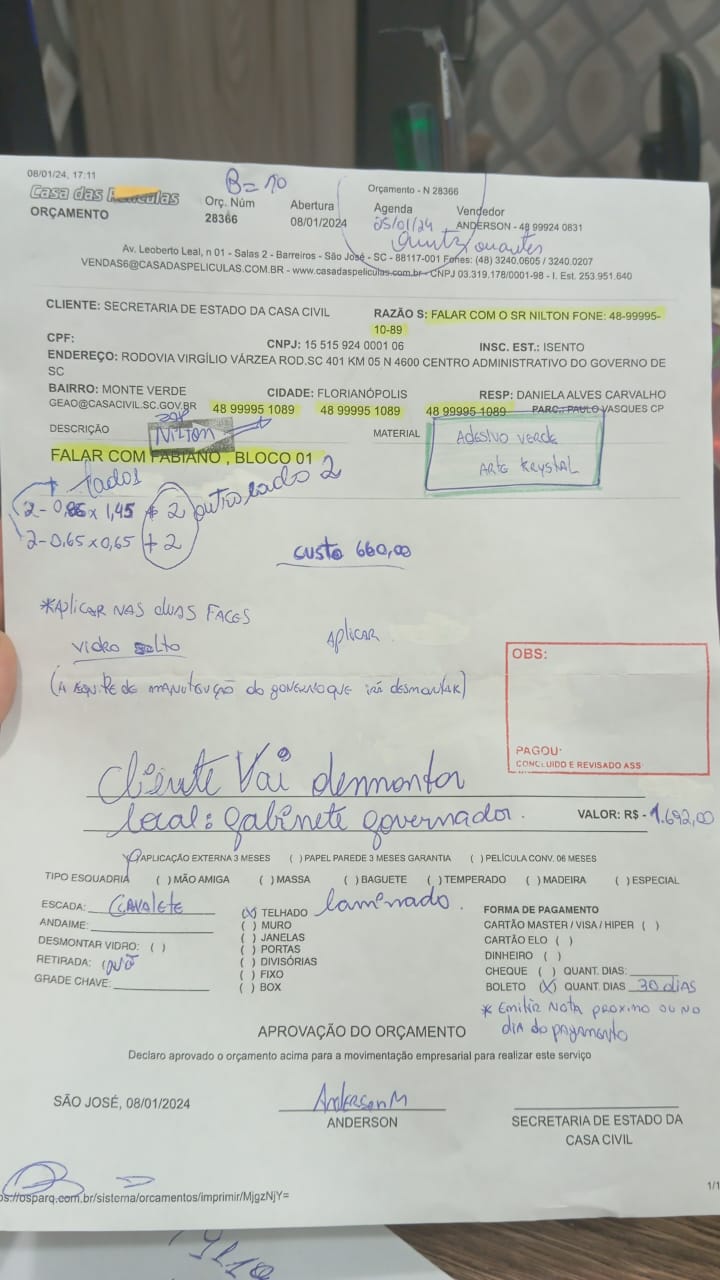 08/01/24, 17:11
B=10
Orçamento - N 28366
Casa das Películas
ORÇAMENTO
Orç. Núm
28366
Abertura
08/01/2024
Agenda
25/01/24
Vendedor
ANDERSON - 48 99924 0831
Av. Leoberto Leal, n 01 - Salas 2 - Barreiros - São José - SC - 88117-001 Fones: (48) 3240.0605 / 3240.0207
VENDAS6@CASADASPELICULAS.COM.BR - www.casadaspeliculas.com.br - CNPJ 03.319.178/0001-98 - I. Est. 253.951.640
CLIENTE: SECRETARIA DE ESTADO DA CASA CIVIL
RAZÃO S: FALAR COM O SR NILTON FONE: 48-99995-
10-89
CPF:
CNPJ: 15 515 924 0001 06
INSC. EST.: ISENTO
ENDEREÇO: RODOVIA VIRGÍLIO VÁRZEA ROD.SC 401 KM 05 N 4600 CENTRO ADMINISTRATIVO DO GOVERNO DE
SC
BAIRRO: MONTE VERDE
CIDADE: FLORIANÓPOLIS
RESP: DANIELA ALVES CARVALHO
GEAO@CASACIVIL.SC.GOV.BR
48 99995 1089
48 99995 1089
48 99995 1089
PARC.: PAULO VASQUES CP
DESCRIÇÃO
NILTON
MATERIAL
ADESIVO VERDE
ARTE KRYSTAL
FALAR COM FABIANO , BLOCO 01
lados
2 - 0,85 x 1,45 + 2 outro lado 2
2 - 0.65 x 0,65 + 2
custo 660,00
*APLICAR NAS duas FACES
APLICAR
vidro solto
(A EQUIPE DE MANUTENÇÃO do GOVERNO QUE irá desmontar)
OBS:
PAGOU:
CONCLUIDO E REVISADO ASS
Cliente Vai desmontar
local: gabinete governador.
VALOR: R$ - 1.692,00
( ) APLICAÇÃO EXTERNA 3 MESES ( ) PAPEL PAREDE 3 MESES GARANTIA ( ) PELÍCULA CONV. 06 MESES
TIPO ESQUADRIA ( ) MÃO AMIGA ( ) MASSA ( ) BAGUETE ( ) TEMPERADO ( ) MADEIRA ( ) ESPECIAL
ESCADA: CAVALETE
ANDAIME:
DESMONTAR VIDRO: ( )
RETIRADA: (NÃO
GRADE CHAVE:
(X) TELHADO laminado.
( ) MURO
( ) JANELAS
( ) PORTAS
( ) DIVISÓRIAS
( ) FIXO
( ) BOX
FORMA DE PAGAMENTO
CARTÃO MASTER / VISA / HIPER ( )
CARTÃO ELO ( )
DINHEIRO ( )
CHEQUE ( ) QUANT. DIAS:
BOLETO (X) QUANT. DIAS 30 dias
* Emitir Nota proximo ou no
dia do pagamento
APROVAÇÃO DO ORÇAMENTO
Declaro aprovado o orçamento acima para a movimentação empresarial para realizar este serviço
SÃO JOSÉ, 08/01/2024
Anderson M
ANDERSON
SECRETARIA DE ESTADO DA
CASA CIVIL
os://osparq.com.br/sistema/orcamentos/imprimir/MjgzNjY=
1/1